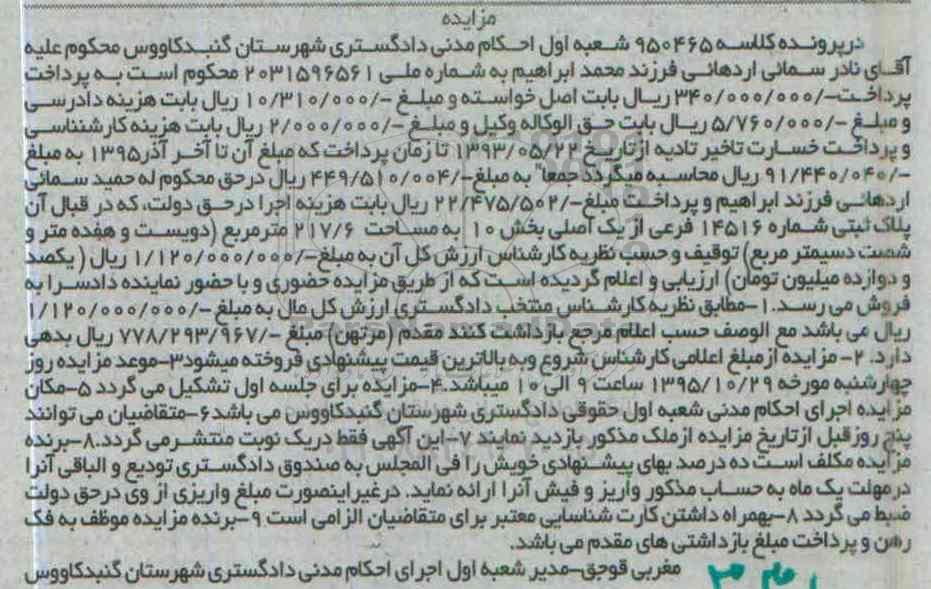 مزایده
درپرونده کلاسه ۹۵۰۴۶۵ شعبه اول احکام مدنی دادگستری شهرستان گنبدکاووس محکوم علیه
آقای نادر سمائی اردهائی فرزند محمد ابراهیم به شماره ملی ۲۰۳۱۵۹۶۵۶۱ محکوم است به پرداخت
پرداخت-/۳۴۰/۰۰۰/۰۰۰ ریال بابت اصل خواسته و مبلغ -/۱۰/۳۱۰/۰۰۰ ریال بابت هزینه دادرسی
و مبلغ -/۵/۷۶۰/۰۰۰ ریال بابت حق الوکاله وکیل و مبلغ -/۲/۰۰۰/۰۰۰ ریال بابت هزینه کارشنناسی
و پرداخت خسارت تاخیر تادیه ازتاریخ ۱۳۹۳/۰۵/۲۲ تا زمان پرداخت که مبلغ آن تا آخر آذر۱۳۹۵ به مبلغ
-/۹۱/۴۴۰/۰۴۰ ریال محاسبه میگردد جمعا" به مبلغ-/۴۴۹/۵۱۰/۰۰۴ ریال درحق محکوم له حمید سمائی
اردهائی فرزند ابراهیم و پرداخت مبلغ-/۲۲/۴۷۵/۵۰۲ ریال بابت هزینه اجرا درحق دولت، که در قبال آن
پلاک ثبتی شماره ۱۴۵۱۶ فرعی از یک اصلی بخش ۱۰ به مساحت ۲۱۷/۶ مترمربع (دویست و هفده متر و
شصت دسیمتر مربع) توقیف و حسب نظریه کارشناس ارزش کل آن به مبلغ-/۱/۱۲۰/۰۰۰/۰۰۰ ریال ( یکصد
و دوازده میلیون تومان) ارزیابی و اعلام گردیده است که از طریق مزایده حضوری و با حضور نماینده دادسرا به
فروش می رسد.۱-مطابق نظریه کارشناس منتخب دادگستری ارزش کل مال به مبلغ -/۱/۱۲۰/۰۰۰/۰۰۰
ریال می باشد مع الوصف حسب اعلام مرجع بازداشت کنند مقدم (مرتهن) مبلغ -/۷۷۸/۲۹۳/۹۶۷ ریال بدهی
دارد. ۲- مزایده ازمبلغ اعلامی کارشناس شروع وبه بالاترین قیمت پیشنهادی فروخته میشود۳-موعد مزایده روز
چهارشنبه مورخه ۱۳۹۵/۱۰/۲۹ ساعت ۹ الی ۱۰ میباشد.۴-مزایده برای جلسه اول تشکیل می گردد ۵-مکان
مزایده اجرای احکام مدنی شعبه اول حقوقی دادگستری شهرستان گنبدکاووس می باشد۶-متقاضیان می توانند
پنج روزقبل ازتاریخ مزایده ازملک مذکور بازدید نمایند ۷-این آگهی فقط دریک نوبت منتشرمی گردد.۸-برنده
مزایده مکلف است ده درصد بهای پیشنهادی خویش را فی المجلس به صندوق دادگستری تودیع و الباقی آنرا
درمهلت یک ماه به حساب مذکور واریز و فیش آنرا ارائه نماید. درغیراینصورت مبلغ واریزی از وی درحق دولت
ضبط می گردد ۸-بهمراه داشتن کارت شناسایی معتبر برای متقاضیان الزامی است ۹-برنده مزایده موظف به فک
رهن و پرداخت مبلغ بازداشتی های مقدم می باشد.
مغربی قوجق-مدیر شعبه اول اجرای احکام مدنی دادگستری شهرستان گنبدکاووس